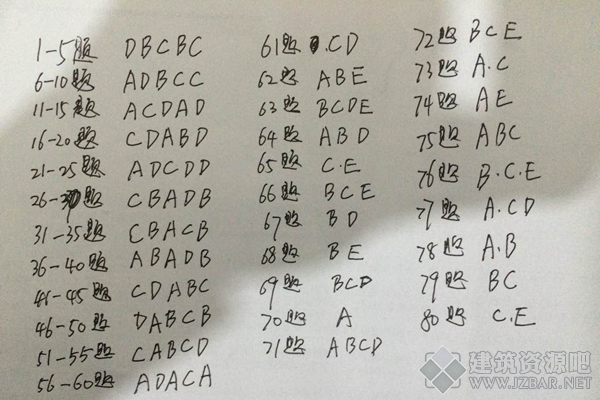 1-5题 DBCBC
6-10题 ADBCC
11-15题 ACDAD
16-20题 CDABD
21-25题 ADCDD
26-30题 CBADB
31-35题 CBACB
36-40题 ABADB
41-45题 CDABC
46-50题 DABCB
51-55题 CABCD
56-60题 ADACA
61题 .CD
62题 ABE
63题 BCDE
64题 ABD
65题 C.E
66题 BCE
67题 BD
68题 BE
69题 BCD
70题 A
71题 ABCD
72题 BCE
73题 A.C
74题 AE
75题 ABC
76题 B.C.E
77题 A.CD
78题 A.B
79题 BC
80题 C.E
建筑资源吧
WWW.JZBAR.NET